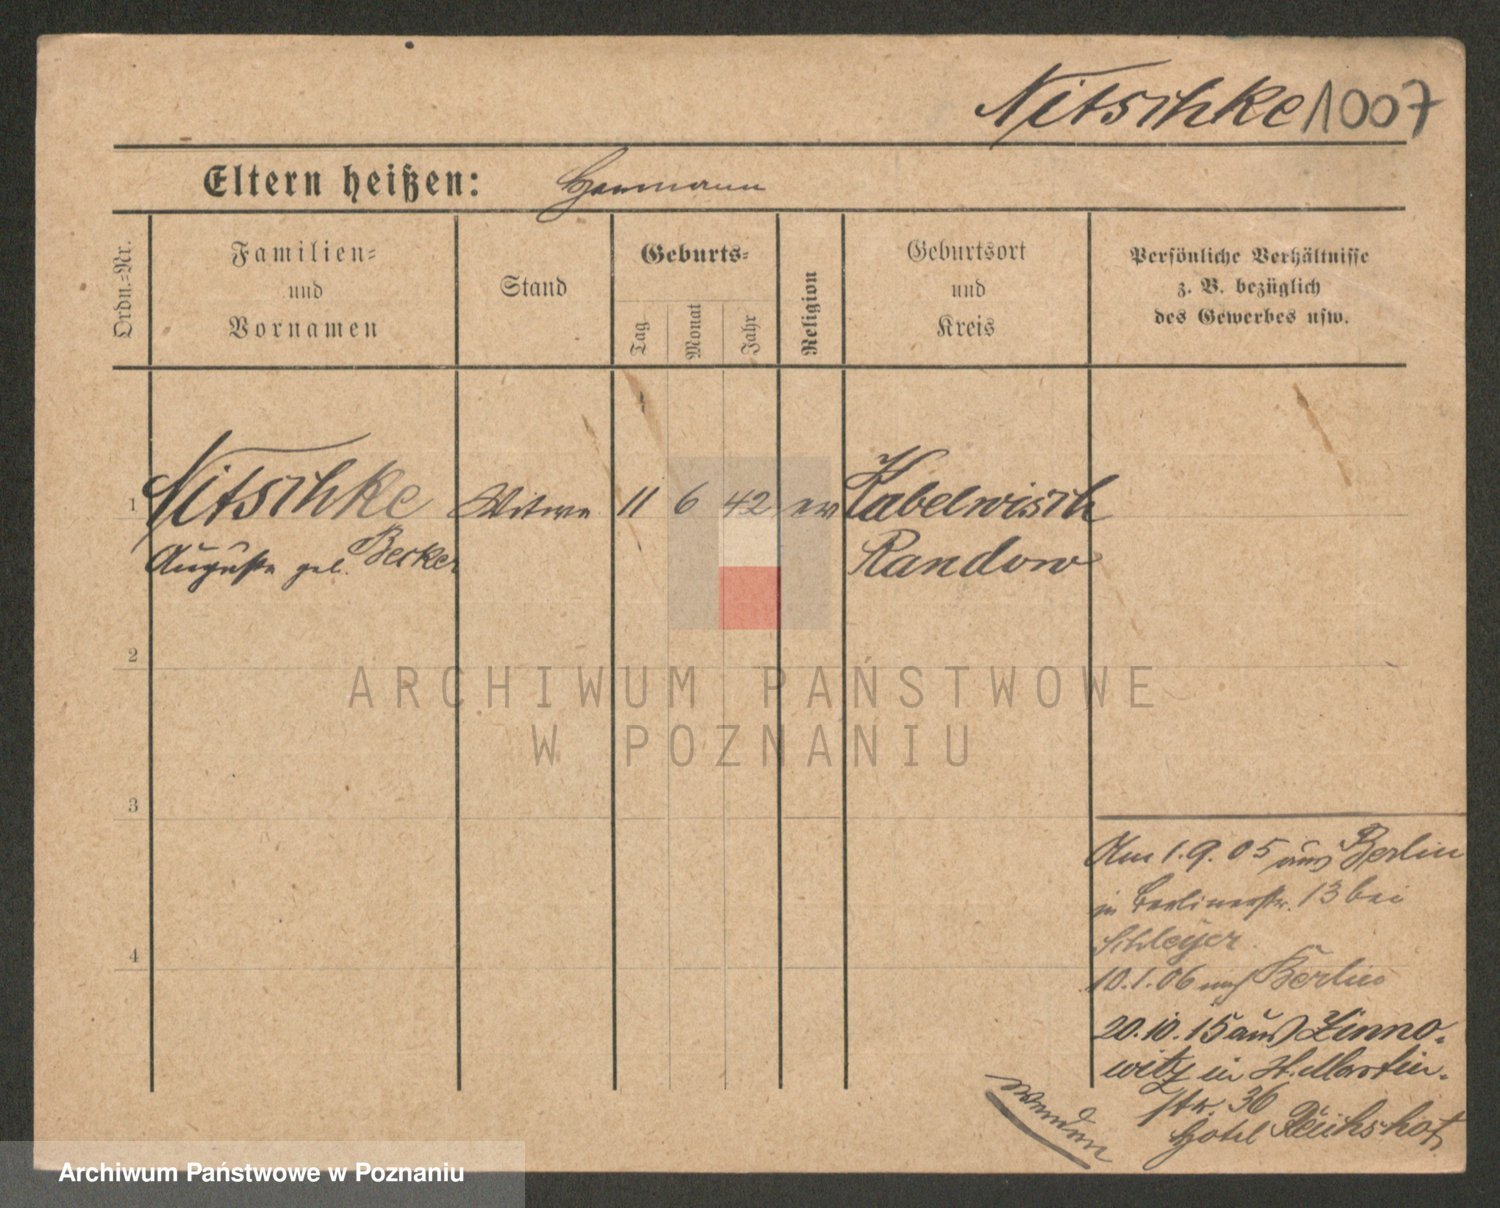 Nitschke 1007
Eltern heißen: Hermann
Ordn.-Nr.
Familien-
und
Vornamen
Stand
Geburts-
Tag
Monat
Jahr
Religion
Geburtsort
und
Kreis
Persönliche Verhältnisse
z. B. bezüglich
des Gewerbes usw.
1 Nitschke Witwe 11 6 42 ev Kabelwisch
Auguste geb. Becker Randow
2
3
4
Am 1.9.05 aus Berlin
in Berlinerstr. 13 bei
Schleyer.
10.1.06 nach Berlin
20.10.15 aus Zinno-
witz in St. Martin-
str. 36
Hotel Reichshof
wenden
ARCHIWUM PAŃSTWOWE
W POZNANIU
Archiwum Państwowe w Poznaniu